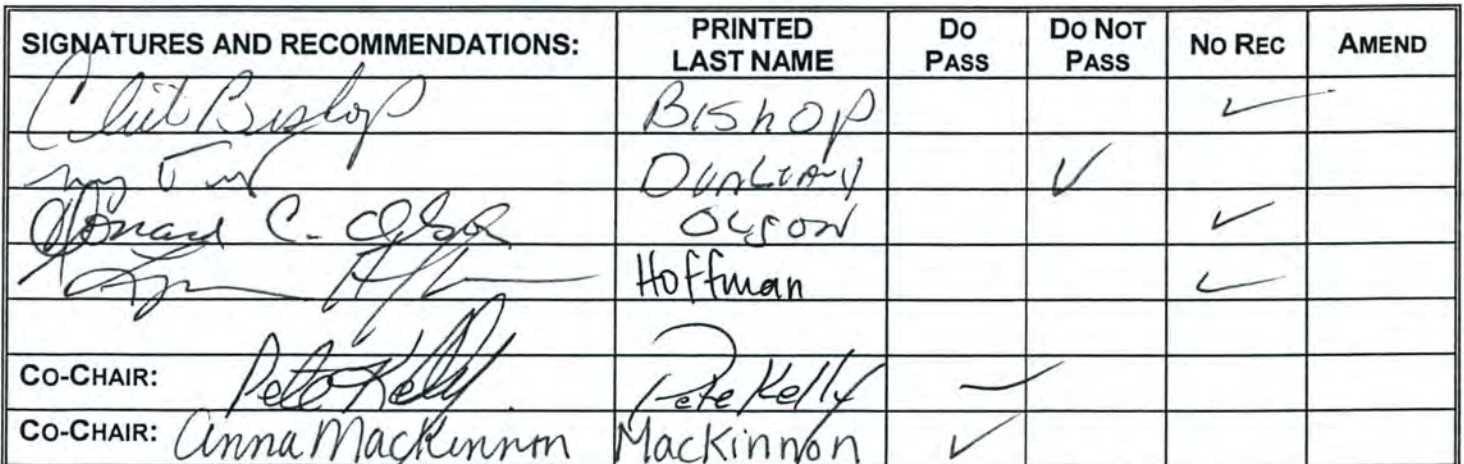 SIGNATURES AND RECOMMENDATIONS: PRINTED LAST NAME DO PASS DO NOT PASS NO REC AMEND
Click Bishop BIShOP ✓
DUNLEAVY ✓
Donard C. Olson OLSON ✓
Hoffman ✓
CO-CHAIR: Pete Kelly Pete Kelly ✓
CO-CHAIR: Anna MacKinnon MacKinnon ✓